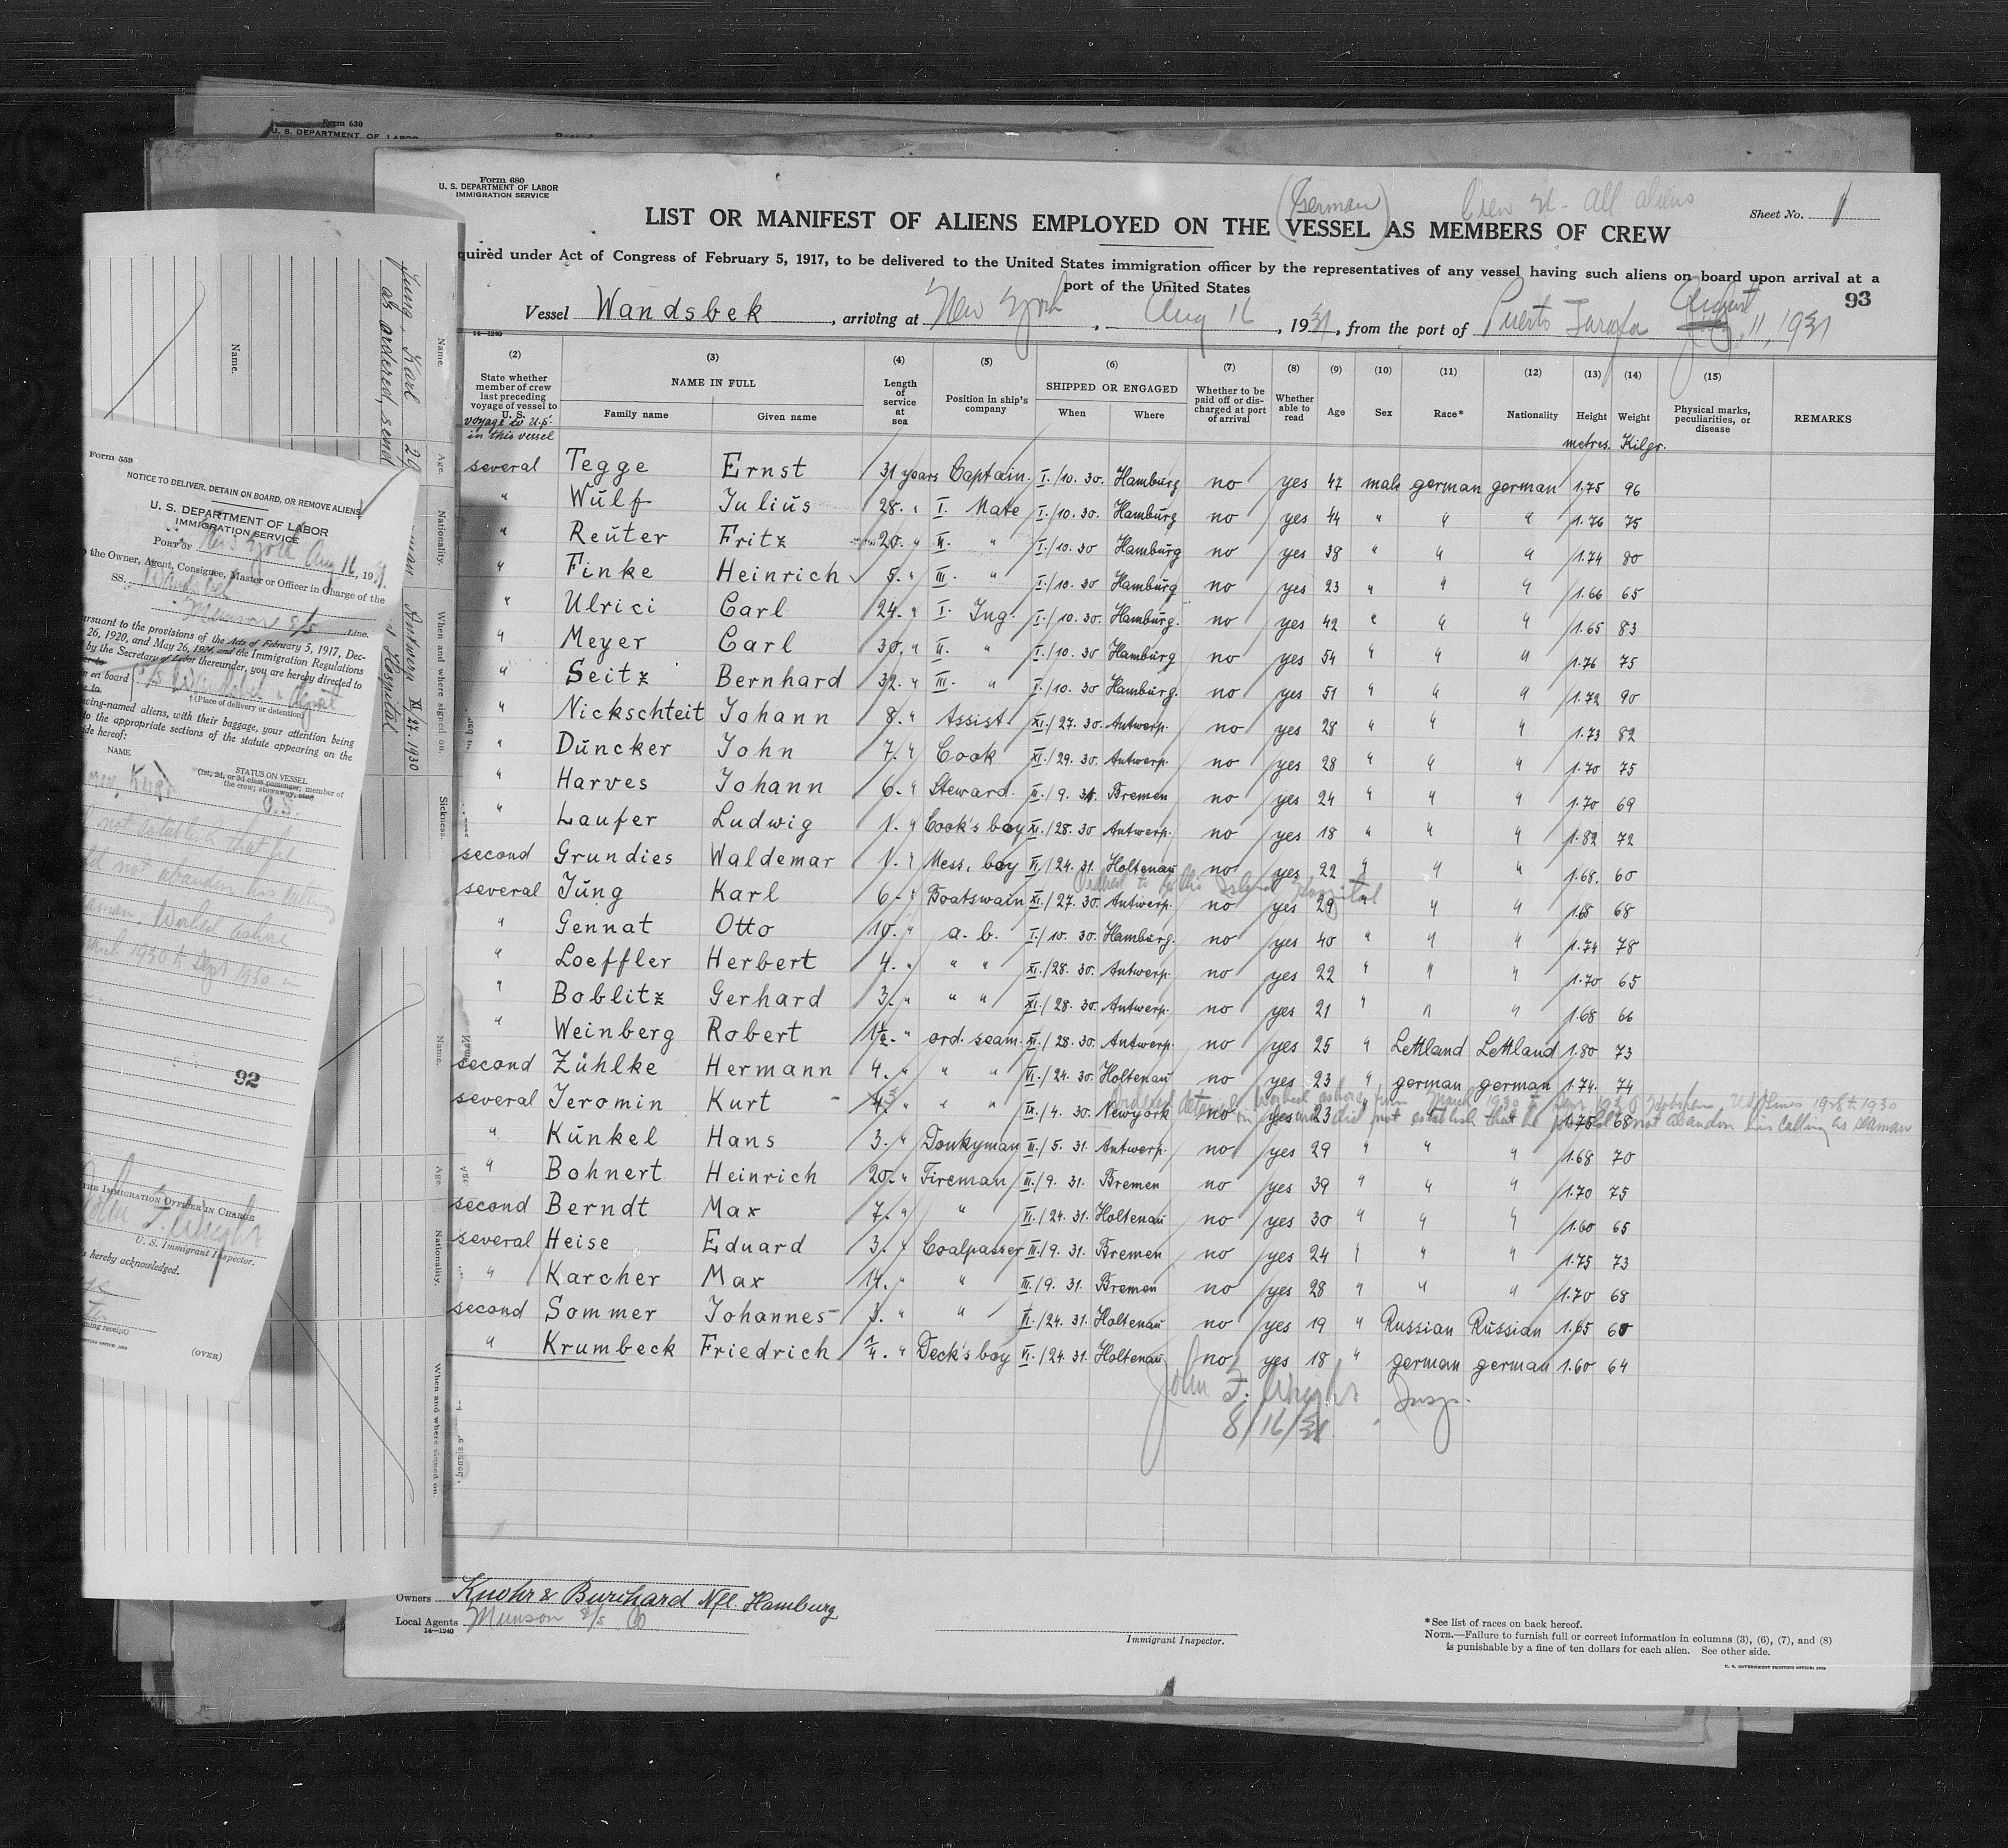 Form 630
U. S. DEPARTMENT OF LABOR
Form 680
U. S. DEPARTMENT OF LABOR
IMMIGRATION SERVICE
(German)
Crew 26 - All Aliens
Sheet No. 1
LIST OR MANIFEST OF ALIENS EMPLOYED ON THE VESSEL AS MEMBERS OF CREW
quired under Act of Congress of February 5, 1917, to be delivered to the United States immigration officer by the representatives of any vessel having such aliens on board upon arrival at a
port of the United States
93
Vessel Wandsbek, arriving at New York, Aug 16, 1931, from the port of Puerto Tarafa August 11, 1931
14—1240
(2) (3) (4) (5) (6) (7) (8) (9) (10) (11) (12) (13) (14) (15)
State whether member of crew last preceding voyage of vessel to U. S. NAME IN FULL Length of service at sea Position in ship's company SHIPPED OR ENGAGED Whether to be paid off or discharged at port of arrival Whether able to read Age Sex Race* Nationality Height Weight Physical marks, peculiarities, or disease REMARKS
Family name Given name When Where
voyage to U.S. in this vessel metres. Kilgr.
several Tegge Ernst 31 years Captain. I./10. 30. Hamburg no yes 47 male german german 1.75 96
" Wulf Julius 28. " I. Mate I./10. 30. Hamburg no yes 44 " " " 1.76 75
" Reuter Fritz 20. " II. " I./10. 30 Hamburg no yes 38 " " " 1.74 80
" Finke Heinrich 5. " III. " I./10. 30 Hamburg no yes 23 " " " 1.66 65
" Ulrici Carl 24. " I. Ing. I./10. 30. Hamburg. no yes 42 " " " 1.65 83
" Meyer Carl 30. " II. " I./10. 30 Hamburg no yes 54 " " " 1.76 75
" Seitz Bernhard 32. " III. " I./10. 30 Hamburg. no yes 51 " " " 1.72 90
" Nickschteit Johann 8. " Assist. XI./27. 30. Antwerp. no yes 28 " " " 1.73 82
" Duncker John 7. " Cook XI./29. 30. Antwerp. no yes 28 " " " 1.70 75
" Harves Johann 6. " Steward. III./9. 31. Bremen no yes 24 " " " 1.70 69
" Laufer Ludwig 1. " Cook's boy XI./28. 30 Antwerp. no yes 18 " " " 1.82 72
second Grundies Waldemar 1. " Mess. boy VI./24. 31. Holtenau no yes 22 " " " 1.68. 60
Ordered to Ellis Island Hospital
several Jung Karl 6. " Boatswain XI./27. 30. Antwerp. no yes 29 " " " 1.68 68
" Gennat Otto 10. " a. b. I./10. 30. Hamburg. no yes 40 " " " 1.74 78
" Loeffler Herbert 4. " " " XI./28. 30. Antwerp. no yes 22 " " " 1.70 65
" Boblitz Gerhard 3. " " " XI./28. 30. Antwerp. no yes 21 " " " 1.68 66
" Weinberg Robert 1½. " ord. seam. XI./28. 30. Antwerp. no yes 25 " Lettland Lettland 1.80 73
second Zühlke Hermann 4. " " " VI./24. 30. Holtenau no yes 23 " german german 1.74. 74
Ordered detained Worked ashore from March 1930 to Sept 1930 US Lines 1928 to 1930
several Jeromin Kurt 3 " " " IX./4. 30. Newyork no yes 23 " " " 1.75 68
did not establish that he would not abandon his calling as seaman
" Kunkel Hans 3. " Donkyman III./5. 31. Antwerp. no yes 29 " " " 1.68 70
" Bohnert Heinrich 20. " Fireman III./9. 31. Bremen no yes 39 " " " 1.70 75
second Berndt Max 7. " " VI./24. 31. Holtenau no yes 30 " " " 1.60 65
several Heise Eduard 3. " Coalpasser III./9. 31. Bremen no yes 24 " " " 1.75 73
" Karcher Max 14. " " III./9. 31. Bremen no yes 28 " " " 1.70 68
second Sommer Johannes 3. " " VI./24. 31. Holtenau no yes 19 " Russian Russian 1.65 60
" Krumbeck Friedrich " Deck's boy VI./24. 31. Holtenau no yes 18 " german german 1.60 64
John F. Wright Insp.
8/16/31
Owners Knohr & Burchard Nfl. Hamburg
Local Agents Munson S/S Co
14—1240
Immigrant Inspector.
*See list of races on back hereof.
NOTE.—Failure to furnish full or correct information in columns (3), (6), (7), and (8)
is punishable by a fine of ten dollars for each alien. See other side.
U. S. GOVERNMENT PRINTING OFFICE
Name. Age. Nationality. When and where signed on. Sickness.
Jung, Karl 29 Antwerp XI/27. 1930
as ordered, send Hospital
Name. Age. Nationality. When and where signed on.
Form 559
NOTICE TO DELIVER, DETAIN ON BOARD, OR REMOVE ALIENS
U. S. DEPARTMENT OF LABOR
IMMIGRATION SERVICE
PORT OF New York Aug 16, 1931.
the Owner, Agent, Consignee, Master or Officer in Charge of the
SS. Wandsbek
Munson S/S Line.
ursuant to the provisions of the Acts of February 5, 1917, Dec-
26, 1920, and May 26, 1924, and the Immigration Regulations
by the Secretary of Labor thereunder, you are hereby directed to
on board S/S Wandsbek
(Place of delivery or detention)
wing-named aliens, with their baggage, your attention being
to the appropriate sections of the statute appearing on the
ide hereof:
NAME
STATUS ON VESSEL
(1st, 2d, or 3d class passenger; member of
the crew; stowaway, etc.)
Kurt O.S.
not establish that he
not abandon his calling
seaman. Worked ashore
March 1930 to Sept 1930 in
92
THE IMMIGRATION OFFICER IN CHARGE
John F. Wright
U. S. Immigrant Inspector.
s hereby acknowledged.
(OVER)